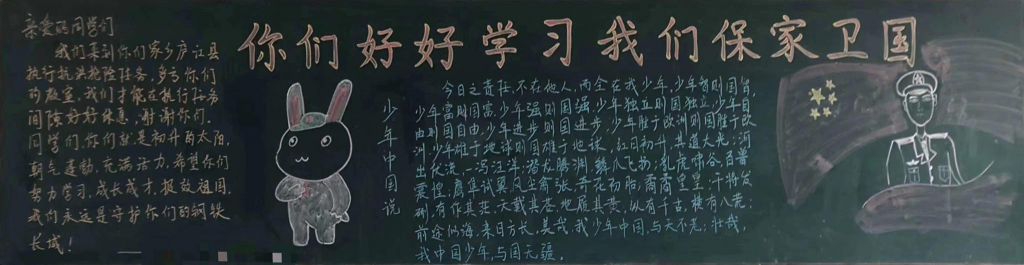 你们好好学习我们保家卫国
亲爱的同学们
我们来到你们家乡庐江县
执行抗洪抢险任务,多亏你们
的教室,我们才能在执行任务
间隙好好休息,谢谢你们。
同学们,你们就是初升的太阳,
朝气蓬勃,充满活力,希望你们
努力学习,成长成才,报效祖国,
我们永远是守护你们的钢铁
长城!
少年中国说
今日之责任,不在他人,而全在我少年,少年智则国智,
少年富则国富,少年强则国强,少年独立则国独立,少年自
由则国自由,少年进步则国进步,少年胜于欧洲则国胜于欧
洲,少年雄于地球则国雄于地球,红日初升,其道大光;河
出伏流,一泻汪洋;潜龙腾渊,鳞爪飞扬;乳虎啸谷,百兽
震惶;鹰隼试翼,风尘翕张;奇花初胎,矞矞皇皇;干将发
硎,有作其芒;天戴其苍,地履其黄,纵有千古,横有八荒;
前途似海,来日方长,美哉,我少年中国,与天不老;壮哉,
我中国少年,与国无疆。